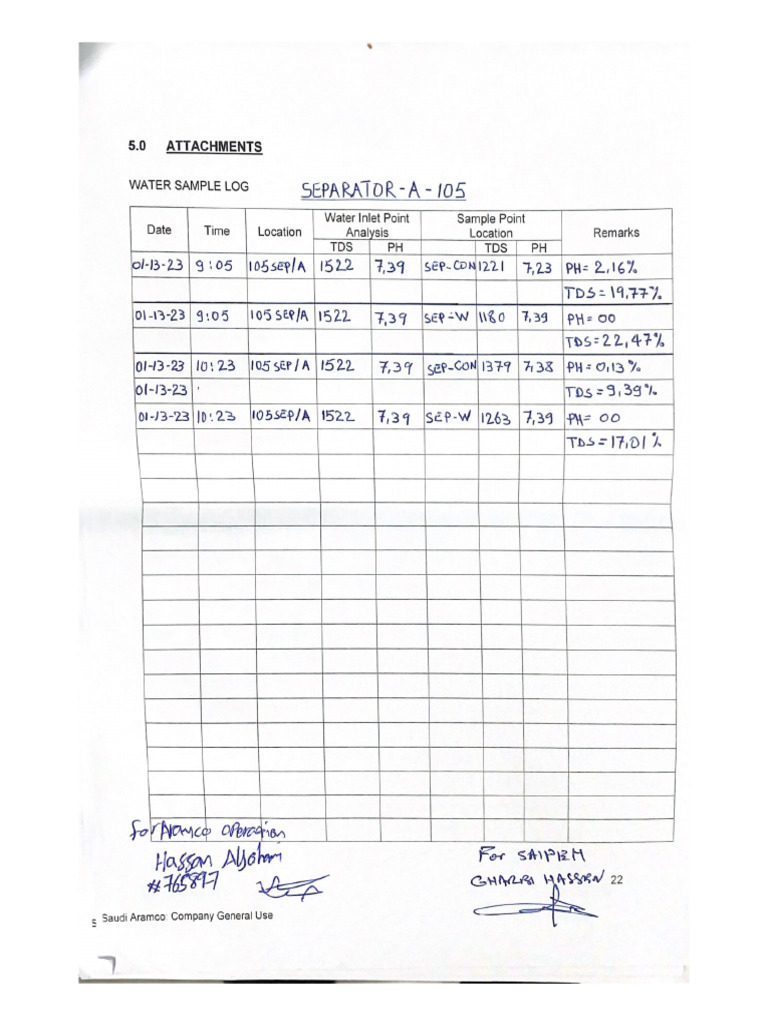 5.0 ATTACHMENTS
WATER SAMPLE LOG SEPARATOR-A-105
Date Time Location Water Inlet Point Analysis Sample Point Location Remarks
TDS PH TDS PH
01-13-23 9:05 105SEP/A 1522 7,39 SEP-CON 1221 7,23 PH=2,16%
TDS=19,77%
01-13-23 9:05 105SEP/A 1522 7,39 SEP-W 1180 7,39 PH=00
TDS=22,47%
01-13-23 10:23 105SEP/A 1522 7,39 SEP-CON 1379 7,38 PH=0,13%
01-13-23 TDS=9,39%
01-13-23 10:23 105SEP/A 1522 7,39 SEP-W 1263 7,39 PH=00
TDS=17,01%
for Aramco operation
Hassan
#765897
For SAIPEM
GHARBI HASSEN 22
5 Saudi Aramco: Company General Use